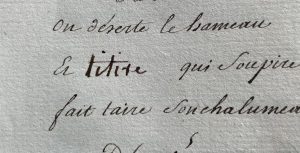 on déserte le hameau
Et titire qui Soupire
fait taire Son chalumeau